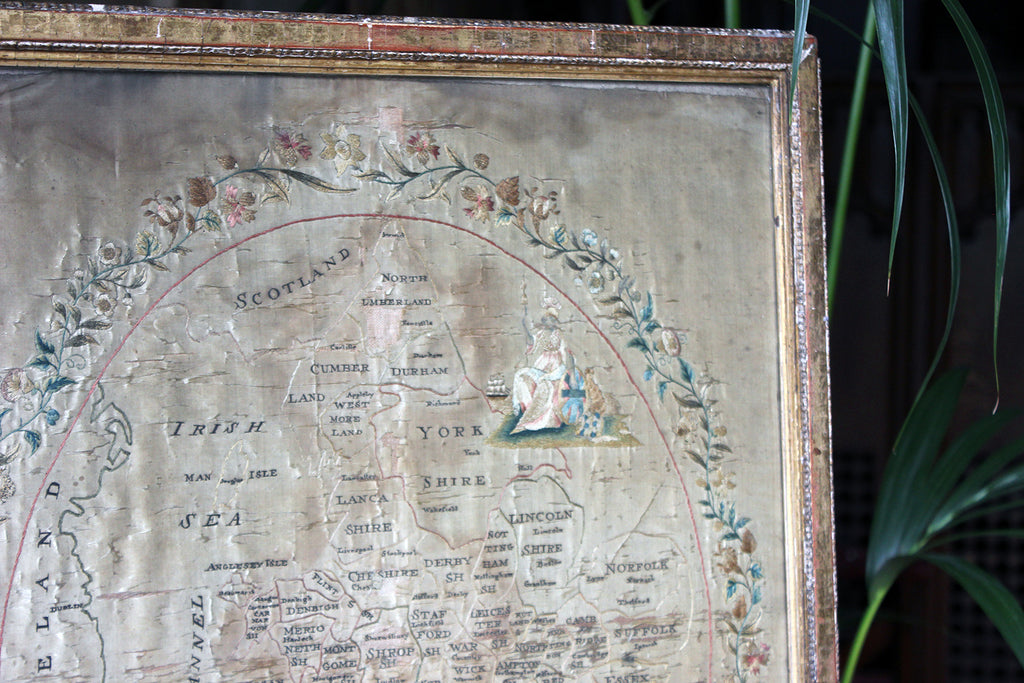 SCOTLAND
NORTH
UMHERLAND
Newcastle
Carlile
Durham
CUMBER
DURHAM
LAND
Appleby
WEST
MORE
LAND
Richmond
IRISH
YORK
York
MAN
ISLE
Hull
Lancaster
SHIRE
LANCA
Wakefield
SEA
SHIRE
LINCOLN
Lincoln
NOT
TING
HAM
SH
SHIRE
Boston
Liverpool
Stockport
ANGLESEY ISLE
CHESHIRE
DERBY
SH
Nottingham
Grantham
NORFOLK
Norwich
Lynn
Thetford
FLINT
Denbigh
DENBIGH
Derby
DUBLIN
ELAND
NNEL
CAR
NAR
VON
SH
MERIO
NETH
SH
MONT
GOME
Shrewsbury
SHROP
SH
STAF
FORD
SH
LEICES
TER
SH
WAR
WICK
RUT
LAND
CAMB
RIDGE
SUFFOLK
Ipswich
NORTH
AMPTON
ESSEX